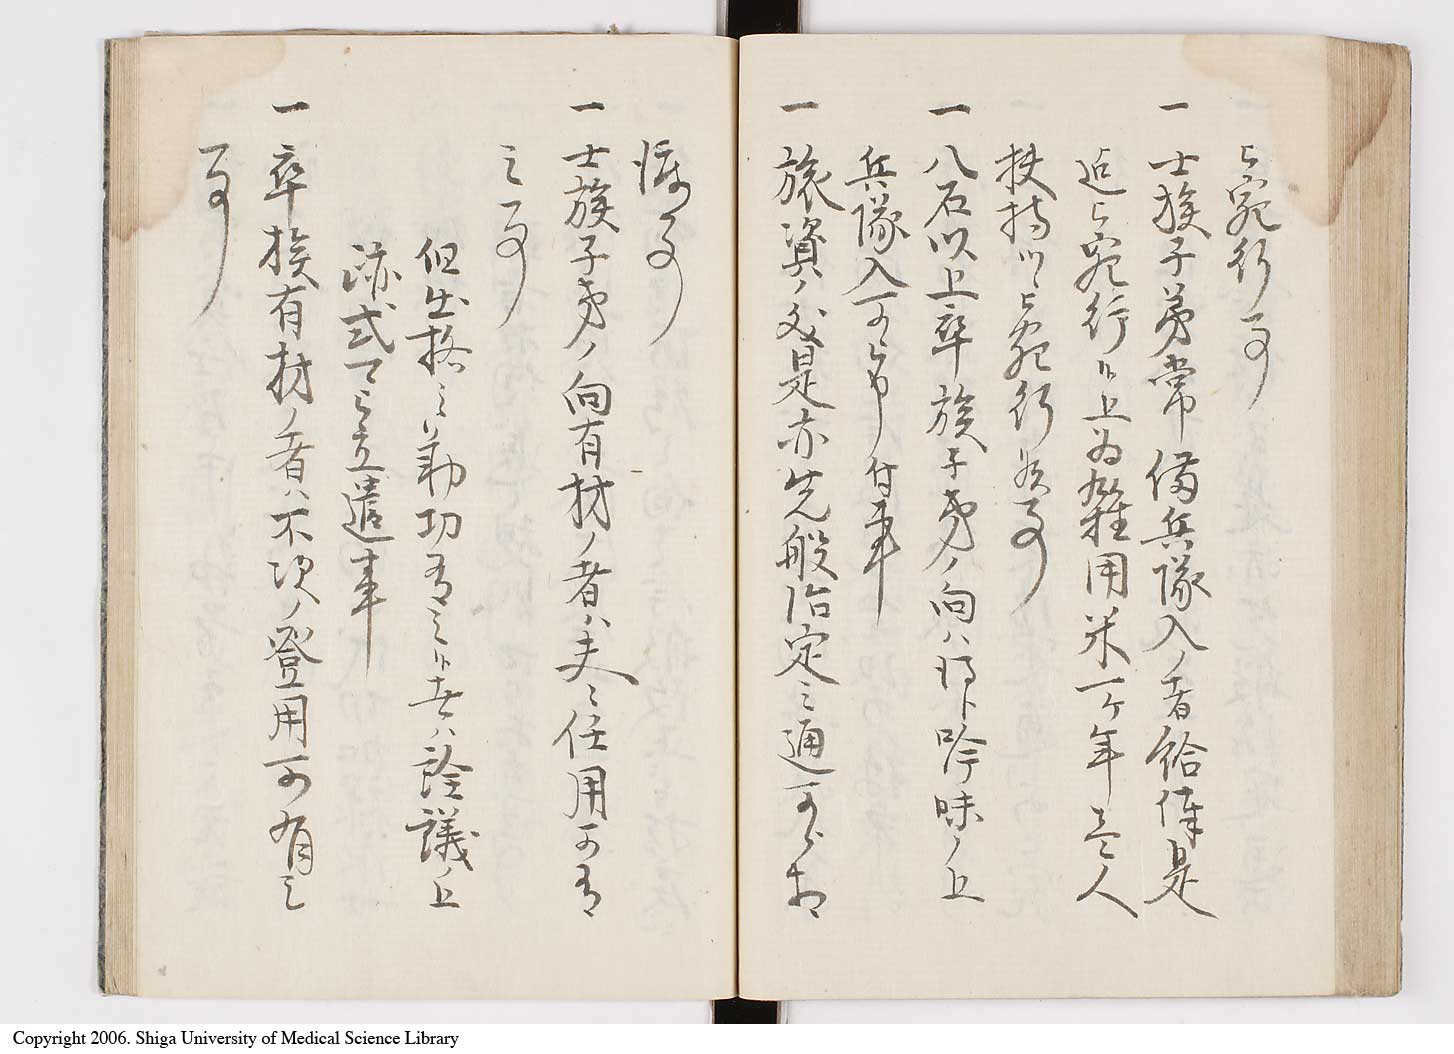 被宛行事
一 士族子弟常備兵隊入ノ者給俸是
迄被宛行候上為雑用米一ケ年壱人
扶持ツヽ被宛行候事
一 八石以上卒族子弟ノ向ハ得ト吟味ノ上
兵隊入可被申付事
一 旅資ノ処是亦先般治定之通可被相
渡事
一 士族子弟ノ向有材ノ者ハ夫々任用可有
之事
但出格之勤功有之候者ハ詮議ノ上
跡式可被立遣事
一 卒族有材ノ者ハ不次ノ登用可有之
事
Copyright 2006. Shiga University of Medical Science Library